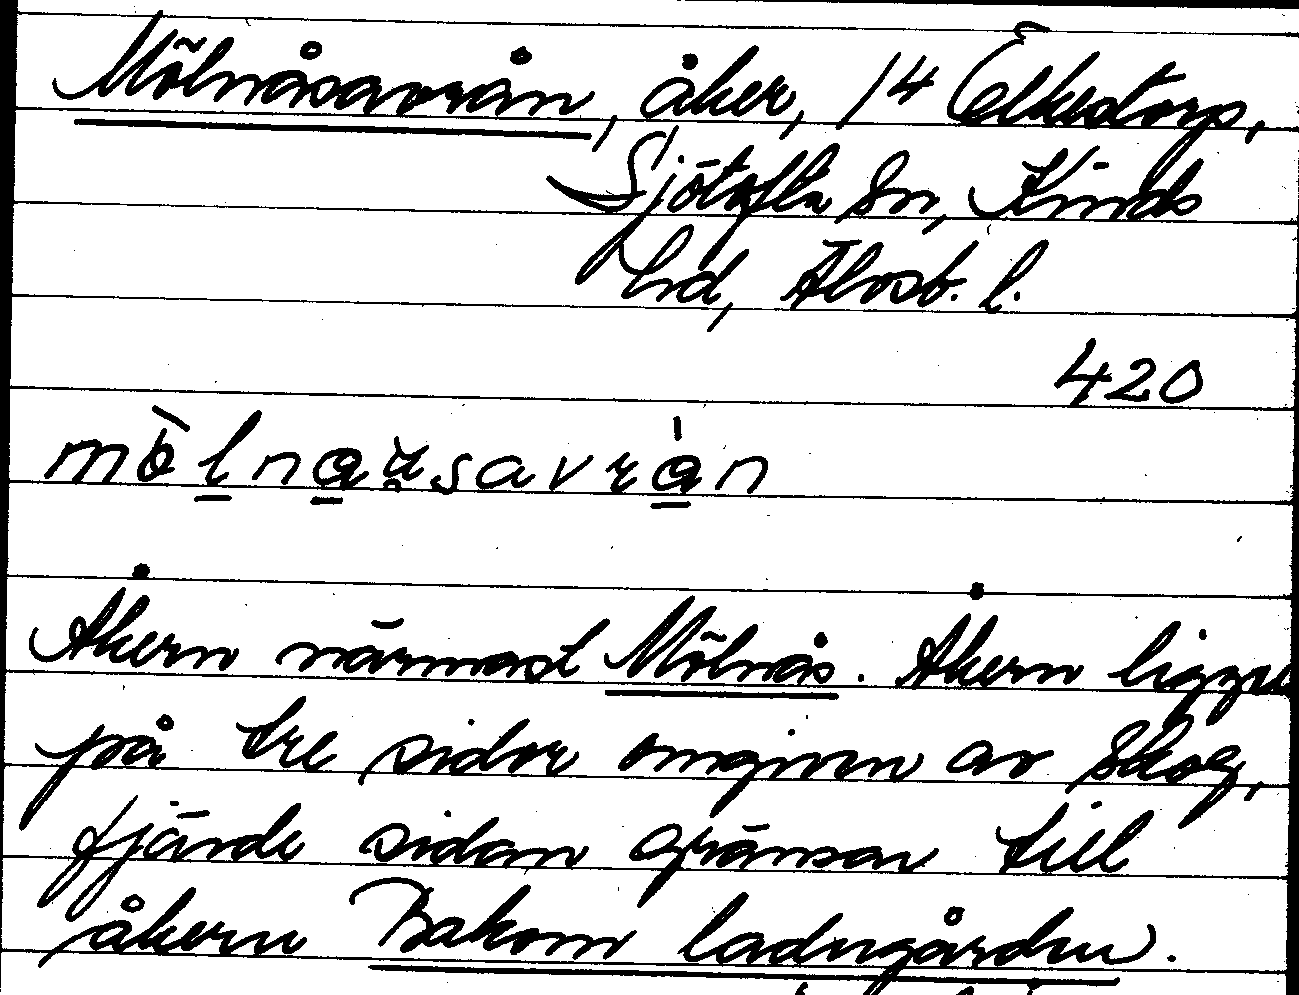 Mölnåsavrån, åker, 14 Elkestorp,
Sjötofta Sn, Kinds
hd, Älvsb. l.
420
Åkern närmast Mölnås. Åkern ligger
på tre sidor omgiven av skog,
fjärde sidan gränsar till
åkern Bakom ladugården.